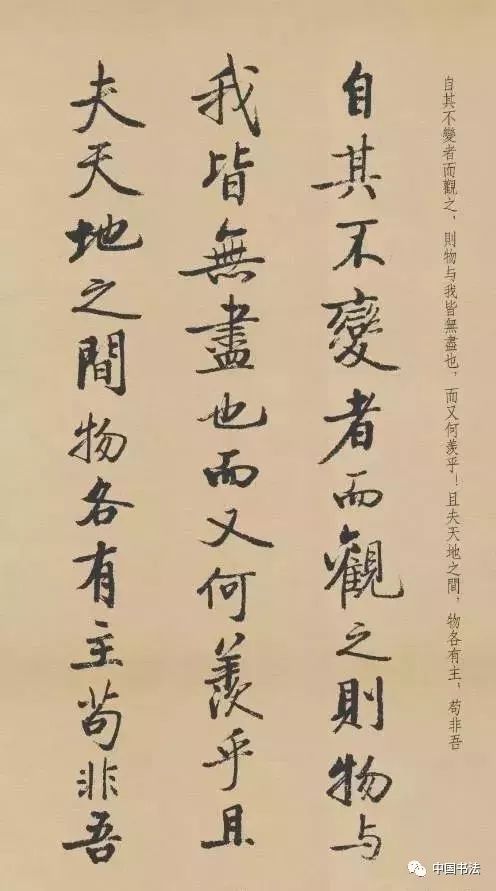 自其不變者而觀之，則物与我皆無盡也，而又何羨乎！且夫天地之間，物各有主，苟非吾
自其不變者而觀之則物与
我皆無盡也而又何羨乎且
夫天地之間物各有主苟非吾
中国书法